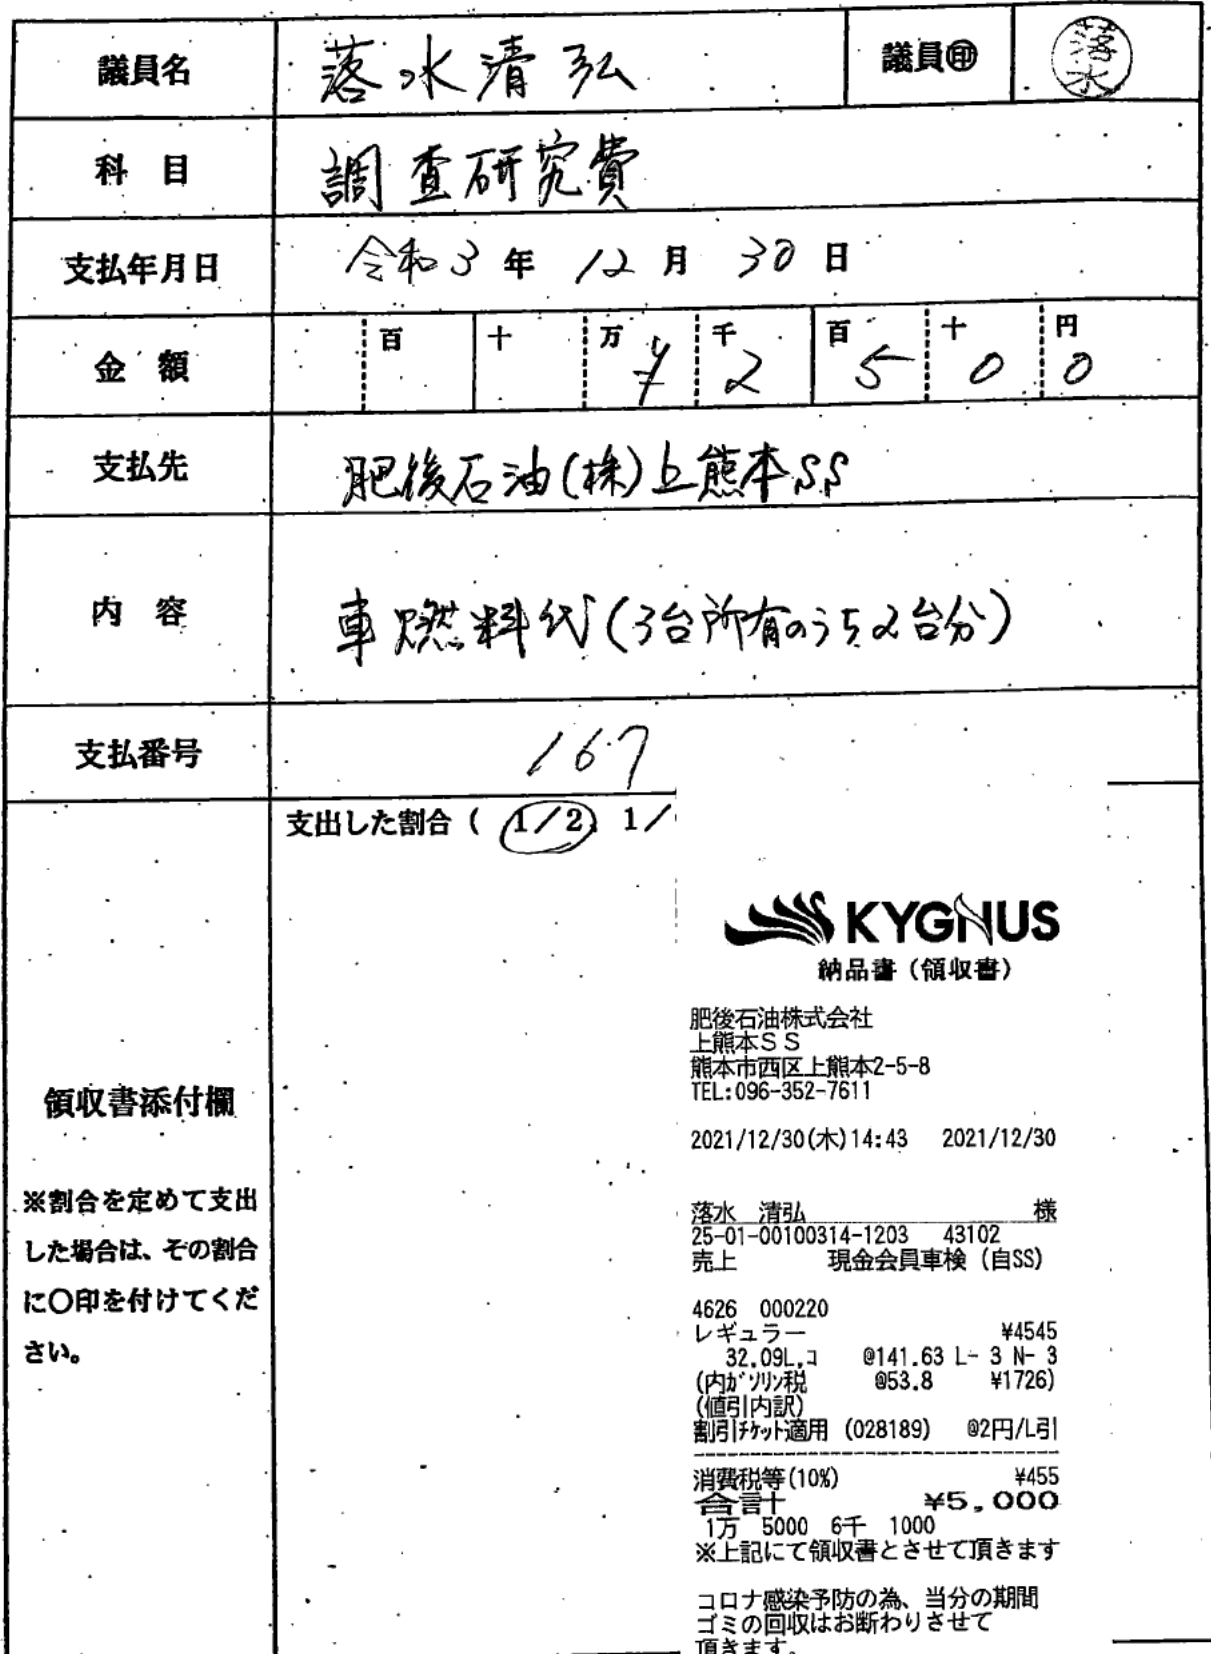 議員名 落水清弘 議員㊞ 落水
科 目 調査研究費
支払年月日 令和3年 12月 30日
金 額 百 十 万 千 百 十 円
¥ 2 5 0 0
支払先 肥後石油(株)上熊本SS
内 容 車燃料代(3台所有のうち2台分)
支払番号 167
支出した割合( 1/2, 1/
KYGNUS
納品書(領収書)
肥後石油株式会社
上熊本SS
熊本市西区上熊本2-5-8
TEL:096-352-7611
2021/12/30(木)14:43 2021/12/30
落水 清弘 様
25-01-00100314-1203 43102
売上 現金会員車検(自SS)
4626 000220
レギュラー ¥4545
32.09L,コ @141.63 L- 3 N- 3
(内ガソリン税 @53.8 ¥1726)
(値引内訳)
割引チケット適用(028189) @2円/L引
消費税等(10%) ¥455
合計 ¥5,000
1万 5000 6千 1000
※上記にて領収書とさせて頂きます
コロナ感染予防の為、当分の期間
ゴミの回収はお断わりさせて
頂きます。
領収書添付欄
※割合を定めて支出
した場合は、その割合
に〇印を付けてくだ
さい。